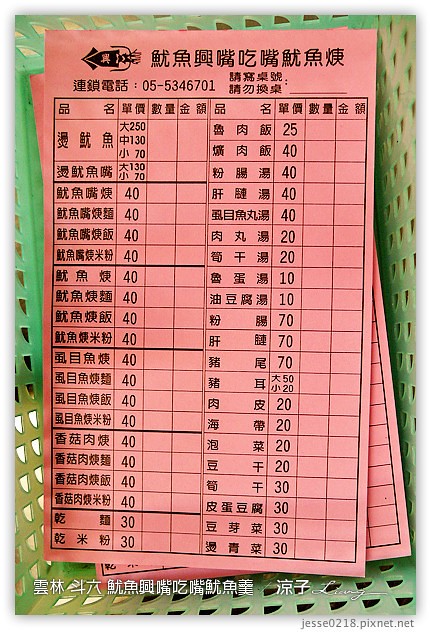 魷魚興嘴吃嘴魷魚焿
連鎖電話：05-5346701 請寫桌號：
請勿換桌
品名 單價 數量 金額 品名 單價 數量 金額
燙魷魚 大250 中130 小70
燙魷魚嘴 大130 小70
魷魚嘴焿 40
魷魚嘴焿麵 40
魷魚嘴焿飯 40
魷魚嘴焿米粉 40
魷魚焿 40
魷魚焿麵 40
魷魚焿飯 40
魷魚焿米粉 40
虱目魚焿 40
虱目魚焿麵 40
虱目魚焿飯 40
虱目魚焿米粉 40
香菇肉焿 40
香菇肉焿麵 40
香菇肉焿飯 40
香菇肉焿米粉 40
乾麵 30
乾米粉 30
魯肉飯 25
爌肉飯 40
粉腸湯 40
肝腱湯 40
虱目魚丸湯 40
肉丸湯 20
筍干湯 20
魯蛋湯 10
油豆腐湯 10
粉腸 70
肝腱 70
豬尾 70
豬耳 大50 小20
肉皮 20
海帶 20
泡菜 20
豆干 20
筍干 30
皮蛋豆腐 30
豆芽菜 30
燙青菜 30
雲林 斗六 魷魚興嘴吃嘴魷魚羹 涼子
jesse0218.pixnet.net